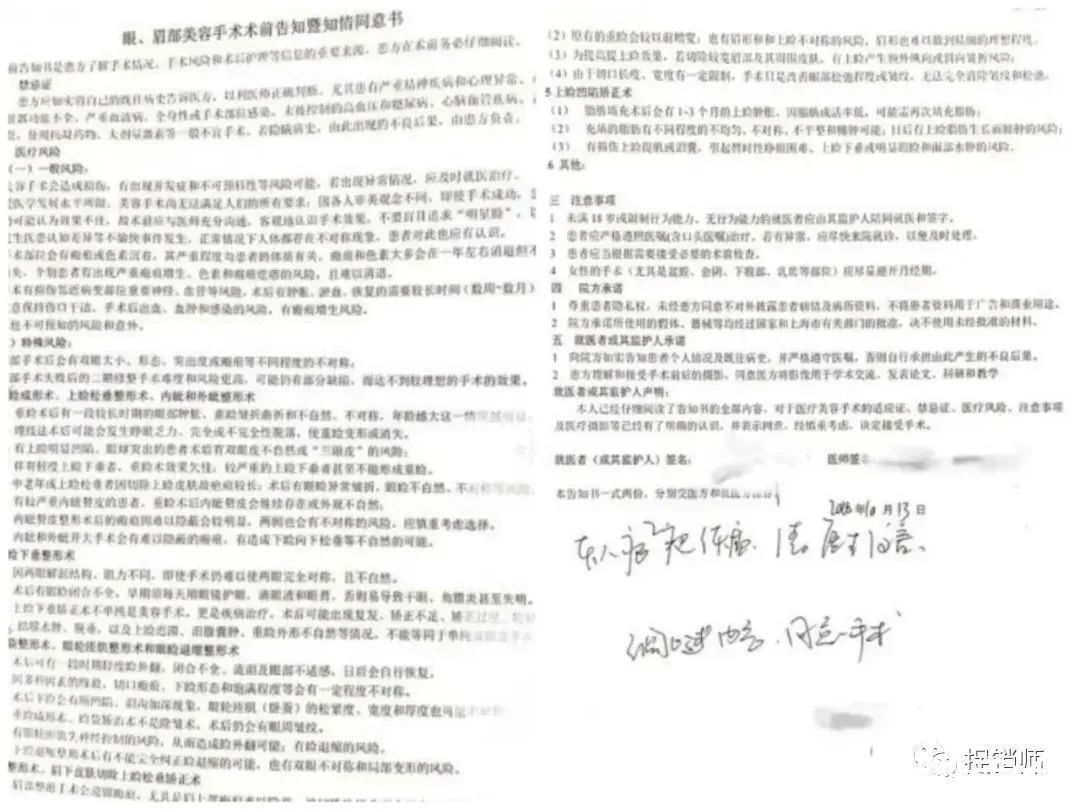 眼、眉部美容手术术前告知暨知情同意书
前告知书是患方了解手术情况、手术风险和术后护理等信息的重要来源，患方在术前务必仔细阅读。
禁忌证
患方应如实将自己的既往病史告诉医方，以利医师正确判断。尤其患有严重精神疾病和心理异常、
器功能不全、严重血液病、全身性或手术部位感染、未被控制的高血压和糖尿病、心脑血管疾病、
使用抗凝药物、大剂量激素等一般不宜手术，若隐瞒病史，由此出现的不良后果，由患方负责。
医疗风险
（一）一般风险：
美容手术会造成损伤，有出现并发症和不可预料性等风险可能，若出现异常情况，应及时就医治疗。
医学发展水平所限，美容手术尚无法满足人们的所有要求，因各人审美观念不同，即使手术成功，
仍可能认为效果不佳，故术前应与医师充分沟通，客观地认识手术效果，不要盲目追求“明星脸”，
发生医患认知差异等不愉快事件发生，正常情况下人体都存在不对称现象，患者对此也应有认识。
手术部位会有瘢痕或色素沉着，其严重程度与患者的体质有关，瘢痕和色素大多会在一年左右消退但不
失，个别患者有出现严重瘢痕增生、色素和瘢痕疙瘩的风险，且难以消退。
术有损伤邻近病变部位重要神经、血管等风险，术后有肿胀、淤血，恢复的需要较长时间（数周~数月）
意保持伤口干洁，手术后出血、血肿和感染的风险，有瘢痕增生风险。
他不可预知的风险和意外。
）特殊风险：
部手术后会有双眼大小、形态、突出度或瘢痕等不同程度的不对称；
部手术失败后的二期修整手术难度和风险更高，可能仍有部分缺陷，而达不到较理想的手术的效果。
睑成形术、上睑松垂整形术、内眦和外眦整形术
重睑术后有一段较长时期的眼部肿胀，重睑皱折曲折和不自然、不对称，年龄越大这一情
埋线法术后可能会发生睁眼乏力、完全或不完全性脱落，使重睑变形或消失。
有上睑明显凹陷、眼球突出的患者术后有双眼皮不自然或“三眼皮”的风险；
伴有程度上睑下垂者，重睑术效果欠佳；较严重的上睑下垂者甚至不能形成重睑。
中老年或上睑松垂者因切除上睑皮肤故疤痕较长；术后有眼睑异常皱折，眼睑不自然、不对称等风险
有较严重内眦赘皮的患者，重睑术后内眦赘皮会继续存在或外观不自然；
内眦赘皮整形术后的瘢痕困难以隐蔽会较明显，两侧也会有不对称的风险，应慎重考虑选择。
内眦和外眦开大手术会有难以隐蔽的瘢痕，有造成下睑向下松垂等不自然的可能。
睑下垂整形术
因两眼解剖结构、肌力不同，即使手术仍难以使两眼完全对称，且不自然。
术后有眼睑闭合不全，早期须每天用眼镜护眼，滴眼液和眼膏，否则易导致干眼、角膜炎甚至失明。
上睑下垂矫正术不单纯是美容手术，更是疾病治疗，术后可能出现复发、矫正不足、矫正过度、
结膜水肿、脱垂，以及上睑迟滞、泪腺囊肿、重睑外形不自然等情况，不能等同于单纯
袋整形术、眼轮匝肌整形术和眼睑退缩整形术
术后可有一段时期轻度睑外翻、闭合不全、流泪及眼部不适感，日后会自行恢复。
因多种因素的缘故，切口瘢痕、下睑形态和饱满程度等会有一定程度不对称。
术后下睑会有所凹陷、泪沟加深现象，眼轮匝肌（卧蚕）的松紧度、宽度和厚度也可能不对称
重睑成形术、睑袋矫治术不是除皱术，术后仍会有眼周皱纹。
有眼轮匝肌失神经控制的风险，从而造成睑外翻可能；有睑退缩的风险。
上睑退缩整形术后有不能完全纠正睑退缩的可能，也有双眼不对称和局部变形的风险。
整形术、眉下皮肤切除上睑松垂矫正术
（2）原有的重睑会较以前增宽；也有眉形和和上睑不对称的风险，眉形也难以做到精细的理想程度。
（3）为提高提上睑效果，若切除较宽眉部及其周围皮肤，有上睑产生额外纵向或斜向皱折风险；
（4）由于切口长度、宽度有一定限制，手术只是改善眼部松弛程度或皱纹，无法完全消除皱纹和松弛。
5上睑凹陷矫正术
（1） 脂肪填充术后会有1-3个月的上睑肿胀，因脂肪成活率低，可能需再次填充脂肪；
（2） 充填的脂肪有不同程度的不均匀、不对称、不平整和臃肿可能；日后有上睑脂肪生长而臃肿的风险；
（3） 有损伤上睑提肌或泪囊，引起暂时性睁眼困难、上睑下垂或明显眼睑和面部水肿的风险。
6 其他：
三 注意事项
1 未满18岁或限制行为能力、无行为能力的就医者应由其监护人陪同就医和签字。
2 患者应严格遵照医嘱(含口头医嘱)治疗，若有异常，应尽快来院就诊，以便及时处理。
3 患者应当根据需要接受必要的术前检查。
4 女性的手术（尤其是盆腔、会阴、下腹部、乳房等部位）应尽量避开月经期。
四 院方承诺
1 尊重患者隐私权，未经患方同意不对外披露患者病情及病历资料，不将患者资料用于广告和商业用途。
2 院方承诺所使用的假体、器械等均经过国家和上海市有关部门的批准，决不使用未经批准的材料。
五 就医者或其监护人承诺
1 向院方如实告知患者个人情况及既往病史，并严格遵守医嘱，否则自行承担由此产生的不良后果。
2 患方理解和接受手术前后的摄影，同意医方将影像用于学术交流、发表论文、科研和教学
就医者或其监护人声明：
本人已经仔细阅读了告知书的全部内容，对于医疗美容手术的适应证、禁忌证、医疗风险、注意事项
及医疗摄影等已经有了明确的认识，并表示同意，经慎重考虑，决定接受手术。
就医者（或其监护人）签名： 医师签名
本告知书一式两份，分别交医方和就医方保存
年10月13日
同意手术
捉销师